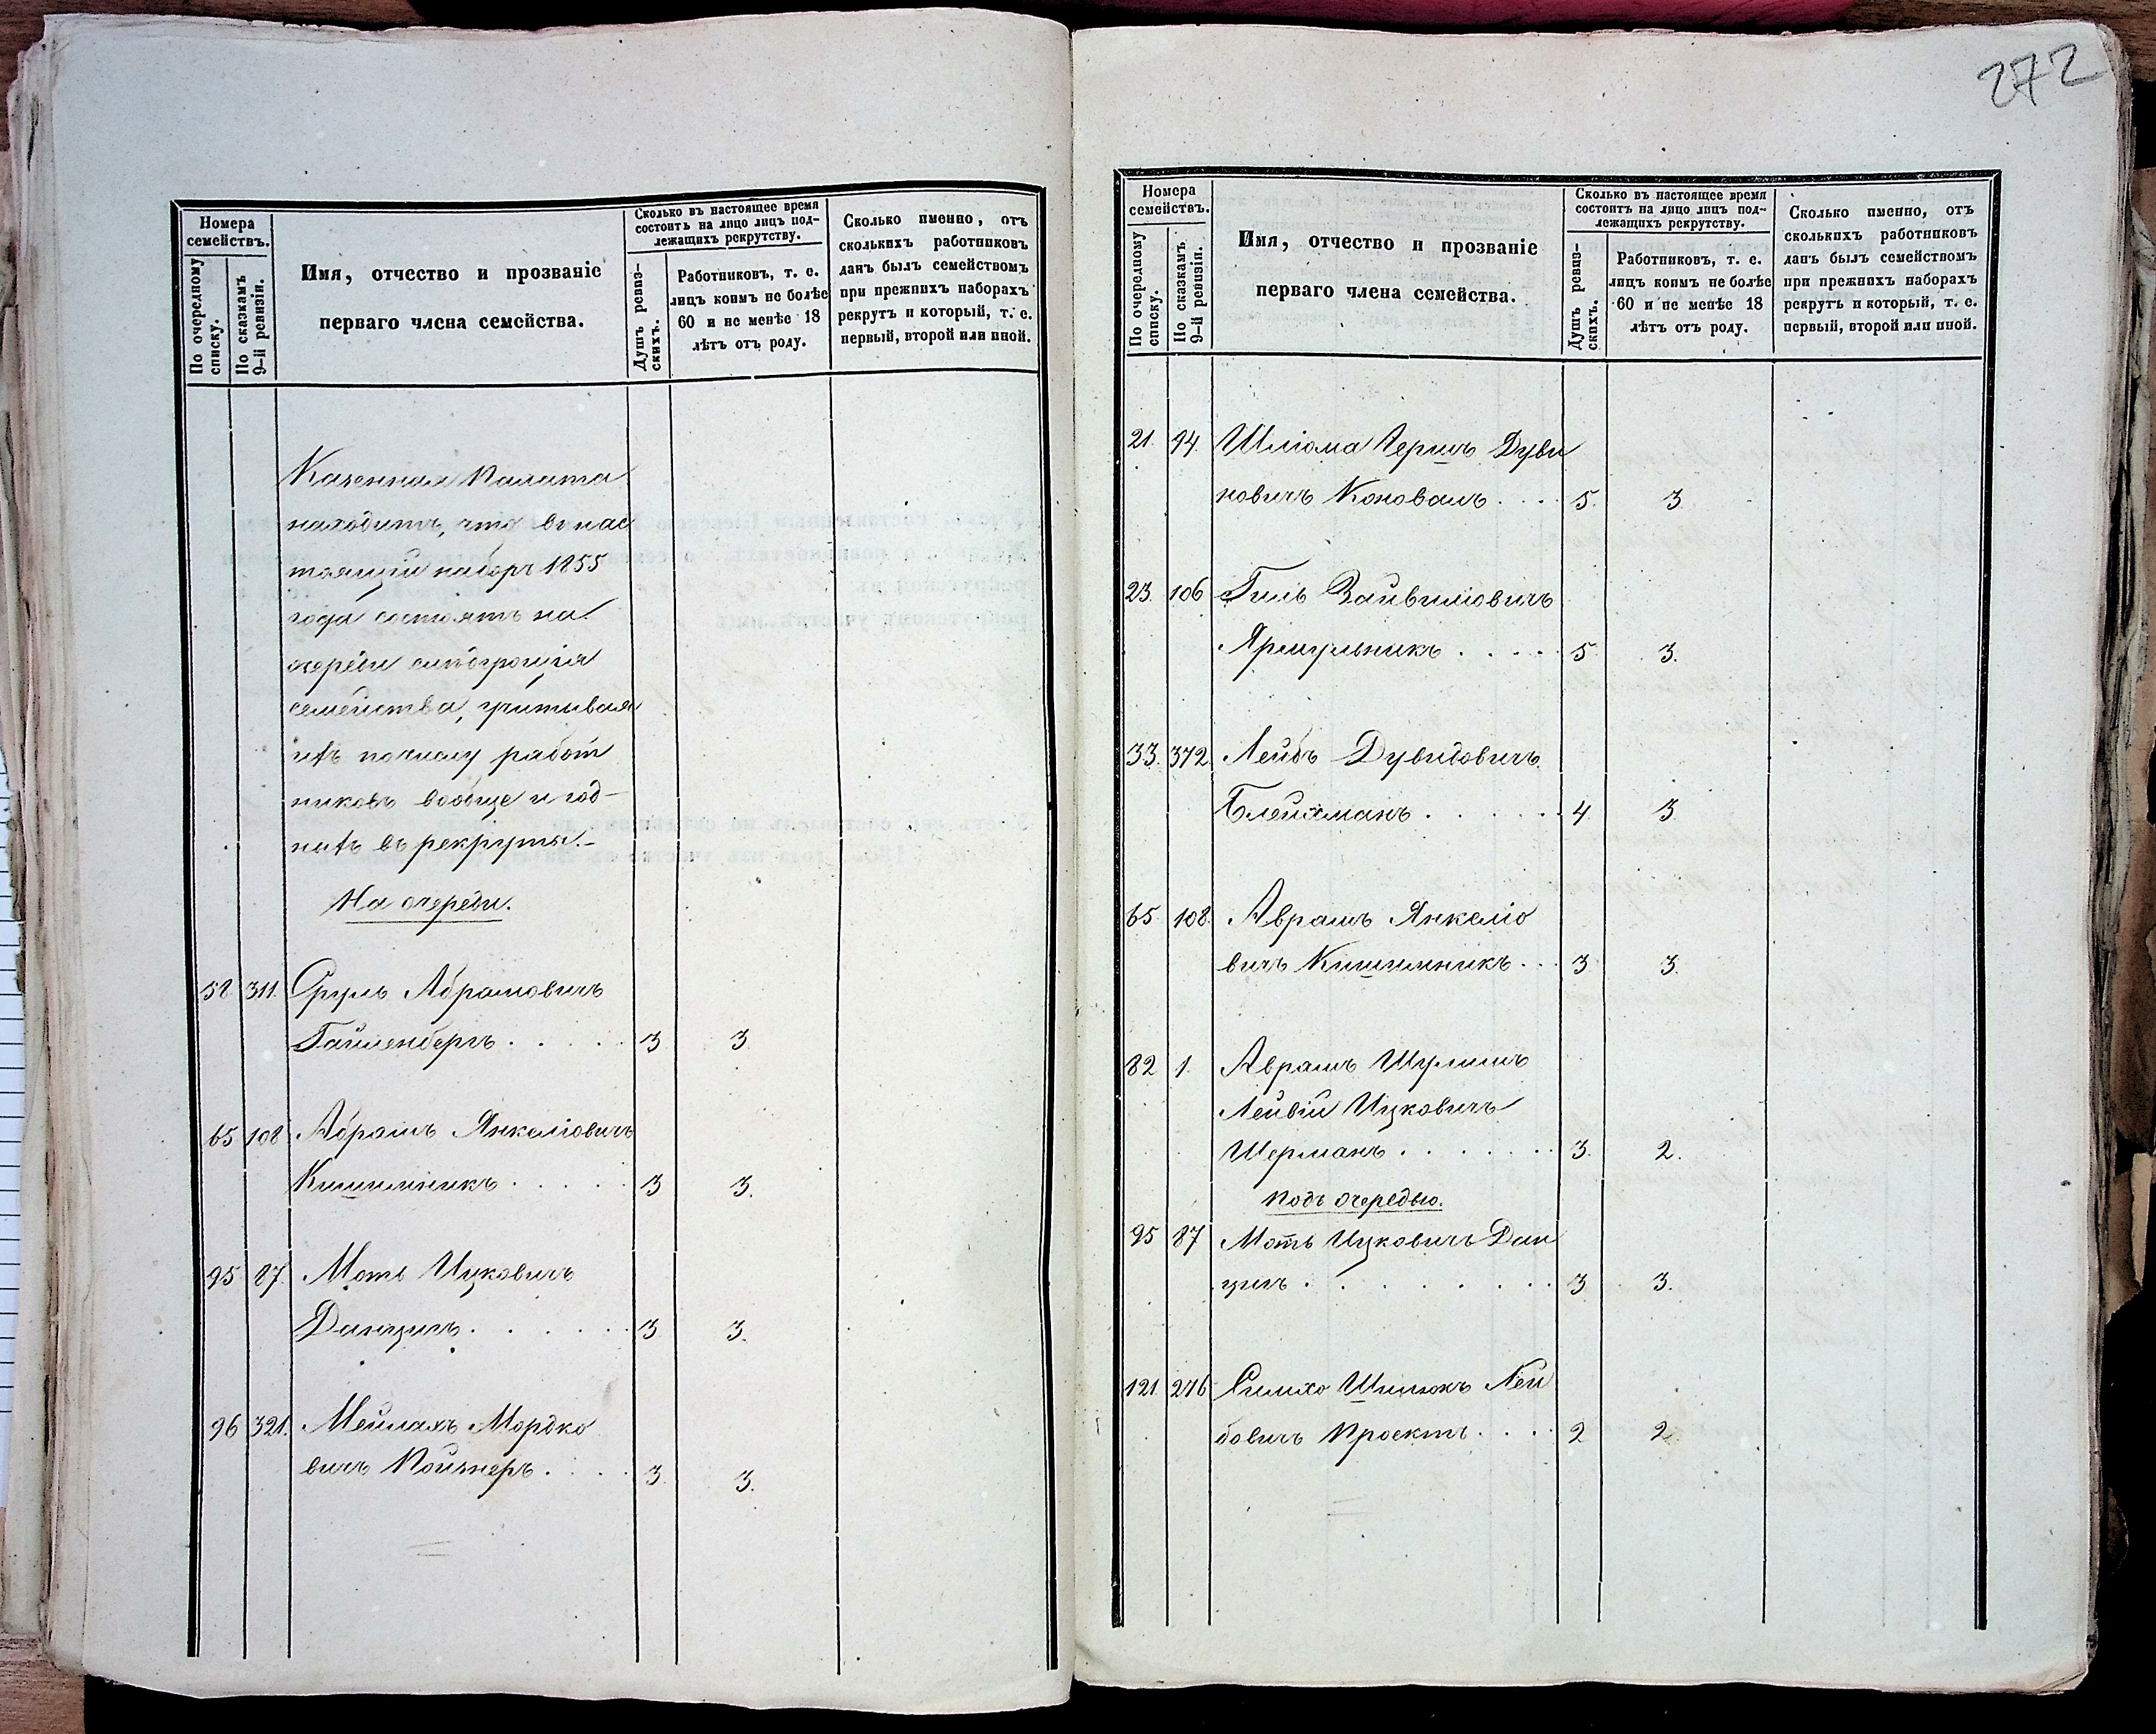 272
Номера
семействъ.
По очередному
списку.
По сказкамъ
9-й ревизіи.
Имя, отчество и прозваніе
перваго члена семейства.
Сколько въ настоящее время
состоитъ на лицо лицъ под-
лежащихъ рекрутству.
Душъ ревиз-
скихъ.
Работниковъ, т. е.
лицъ коимъ не болѣе
60 и не менѣе 18
лѣтъ отъ роду.
Сколько именно, отъ
сколькихъ работниковъ
данъ былъ семействомъ
при прежнихъ наборахъ
рекрутъ и который, т. е.
первый, второй или иной.
Казенная Палата
находитъ, что въ нас
тоящій наборъ 1855
года состоятъ на
очереди слѣдующія
семейства, учитывая
ихъ по числу работ
никовъ вообще и год-
ныхъ въ рекруты.-
На очереди.
58. 311. Сруль Абрамовичъ
Гайленбергъ . . . . . 3 3
65 108 Абрамъ Янкеліовичъ
Кишильникъ . . . . . 3 3.
95 87. Моть Ицковичъ
Данцигъ . . . . . . 3 3.
96 321. Мейлахъ Мордко
вичъ Пойзнеръ . . . . 3 3.
Номера
семействъ.
По очередному
списку.
По сказкамъ
9-й ревизіи.
Имя, отчество и прозваніе
перваго члена семейства.
Сколько въ настоящее время
состоитъ на лицо лицъ под-
лежащихъ рекрутству.
Душъ ревиз-
скихъ.
Работниковъ, т. е.
лицъ коимъ не болѣе
60 и не менѣе 18
лѣтъ отъ роду.
Сколько именно, отъ
сколькихъ работниковъ
данъ былъ семействомъ
при прежнихъ наборахъ
рекрутъ и который, т. е.
первый, второй или иной.
21. 94. Шліома Гершъ Дуви
новичъ Коновалъ . . . 5. 3
23. 106 Гиль Зайвиліовичъ
Ярмульникъ . . . . . 5. 3.
33. 372. Лейбъ Дувидовичъ
Блейхманъ . . . . . . 4. 3
65. 108. Аврамъ Янкеліо
вичъ Кишильникъ . . . 3. 3.
82 1. Аврамъ Шулимъ
Лейвій Ицковичъ
Шерманъ . . . . . . . 3. 2.
Подъ очередью.
95 87 Моть Ицковичъ Дан
цигъ . . . . . . . . 3 3.
121. 276 Симхо Шписокъ Лей
бовичъ Проектъ . . . . 2 2.